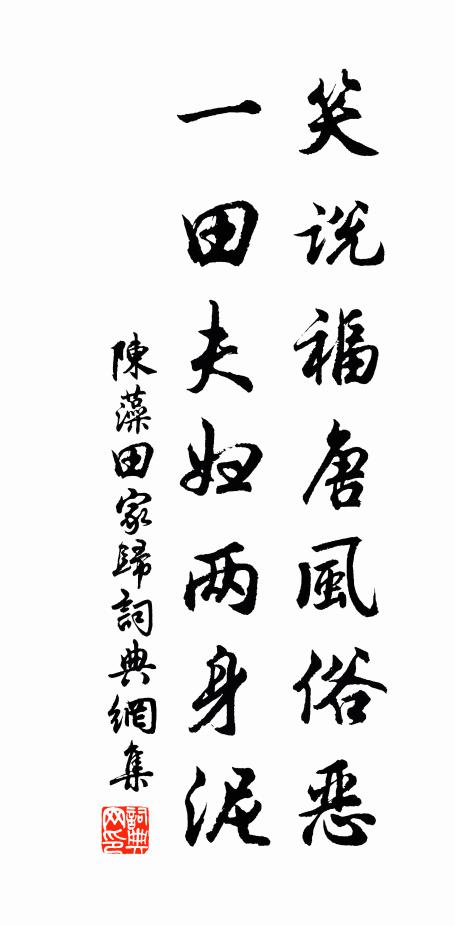 笑説福唐風俗惡
一田夫婦兩身泥
陳藻田家歸詞典網集
詞典網印